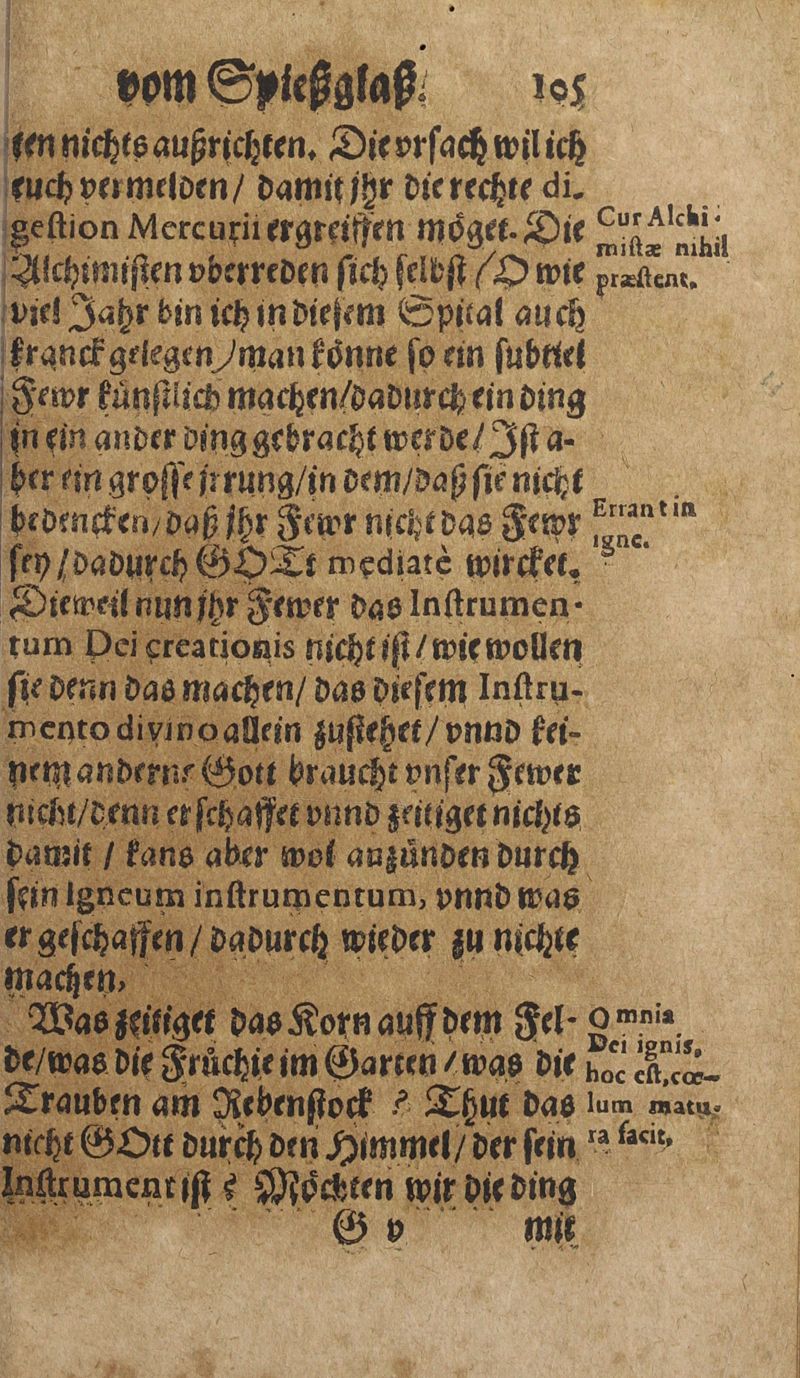 vom Spießglaß. 105
ten nichts außrichten. Die vrsach wil ich
euch vermelden/ damit jhr die rechte di-
gestion Mercurii ergreiffen möget. Die
Alchimisten vberreden sich selbst (O wie
viel Jahr bin ich in diesem Spital auch
kranck gelegen) man könne so ein subtiel
Fewr künstlich machen/dadurch ein ding
in ein ander ding gebracht werde/ Ist a-
ber ein grosse jrrung/in dem/daß sie nicht
bedencken/daß jhr Fewr nicht das Fewr
sey/dadurch GOTt mediatè wircket.
Dieweil nun jhr Fewer das Instrumen-
tum Dei creationis nicht ist/wie wollen
sie denn das machen/ das diesem Instru-
mento divino allein zustehet/vnnd kei-
nem anderm? Gott braucht vnser Fewer
nicht/denn er schaffet vnnd zeitiget nichts
damit / kans aber wol anzünden durch
sein Igneum instrumentum, vnnd was
er geschaffen/dadurch wieder zu nichte
machen,
Was zeitiget das Korn auff dem Fel-
de/was die Früchte im Garten/was die
Trauben am Rebenstock ? Thut das
nicht GOtt durch den Himmel/der sein
Instrument ist ? Möchten wir die ding
G v mit
Cur Alchi-
mistæ nihil
præstent.
Errant in
igne.
Omnia
Dei ignis,
hoc est,cœ-
lum matu-
ra facit,